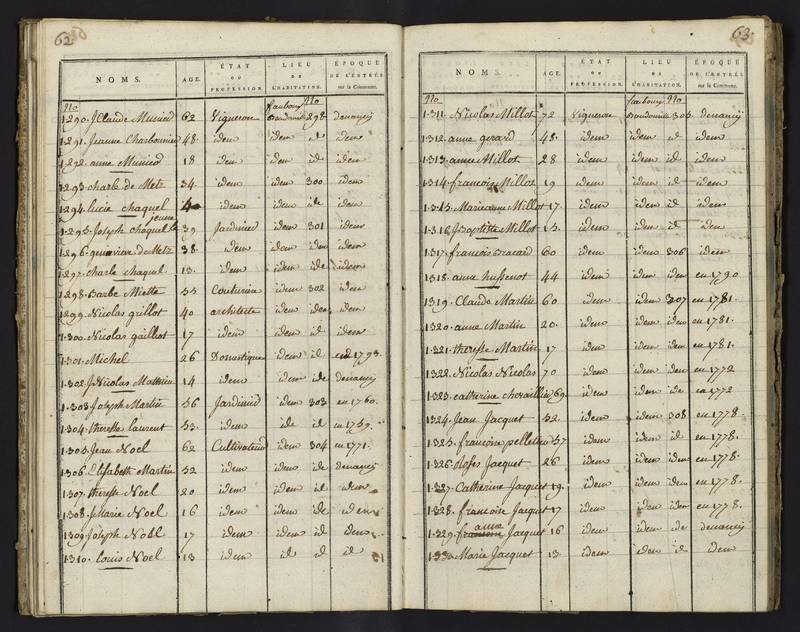 62
NOMS. AGE. ÉTAT OU PROFESSION. LIEU DE L'HABITATION. ÉPOQUE DE L'ENTRÉE sur la Commune.
No faubourg No
1290. J Claude Municod 62 Vigneron 298 denancij
1291. Jeanne Charbonnier 48. idem idem id idem
1292. anne Municod 18 idem idem id idem
1293. charle de Metz 34. idem idem 300 idem
1294. lucie chaquel idem idem ide idem
jeune
1295. Joseph chaquel le 39 Jardinier idem 301 idem
1296. genevieve de Metz 38. idem idem idem idem
1297. charle chaquel 13. idem idem ide idem
1298. Barbe Miette 55 Couturiere idem 302 idem
1299. Nicolas grillot 40 architecte idem idem idem
1300. Nicolas gailliot 17 idem idem id idem
1301. Michel 26 Domestique idem id en 1793.
1302. J Nicolas Mathieu 14 idem idem ide denancij
1303. Joseph Martin 56 Jardinier idem 303 en 1760.
1304. theresse laurent 53. idem ide id en 1759.
1305. Jean Noel 62 Cultivateur idem 304 en 1771.
1306. Elisabeth Martin 52 idem idem ide denancij
1307. theresse Noel 20 idem idem id idem
1308. Marie Noel 16 idem idem ide idem
1309. Joseph Noel 17 idem idem id idem
1310. louis Noel 13 idem id id id
63.
NOMS. AGE. ÉTAT OU PROFESSION. LIEU DE L'HABITATION. ÉPOQUE DE L'ENTRÉE sur la Commune.
No faubourg No
1311. Nicolas Millot 72 Vigneron 305 denancij
1312. anne gerard 48. idem idem id idem
1313. aimée Millot 28 idem idem id idem
1314. francois Millot 19 idem idem id idem
1315. Marie anne Millot 17. idem idem id idem
1316. J Baptiste Millot 15. idem idem id idem
1317. francois 60 idem idem 306 idem
1318. anne hussenot 44 idem idem idem en 1790
1319. Claude Martin 60 idem idem 307 en 1781.
1320. anne Martin 20. idem idem idem en 1781.
1321. theresse Martin 17 idem idem id en 1781.
1322. Nicolas Nicolas 70 idem idem idem en 1772
1323. catherine 69. idem idem ide en 1772
1324. Jean Jacquet 52. idem idem 308 en 1778.
1325. francoise pelletier 57 idem idem id en 1778.
1326. Roses Jacquet 26 idem idem idem en 1778.
1327. Catherine Jacquet 19. idem idem idem en 1778.
1328. francoise Jacquet 17 idem idem idem en 1778.
anne
1329. Jacquet 16 idem idem ide denancij
1330. Marie Jacquet 13 idem idem id idem